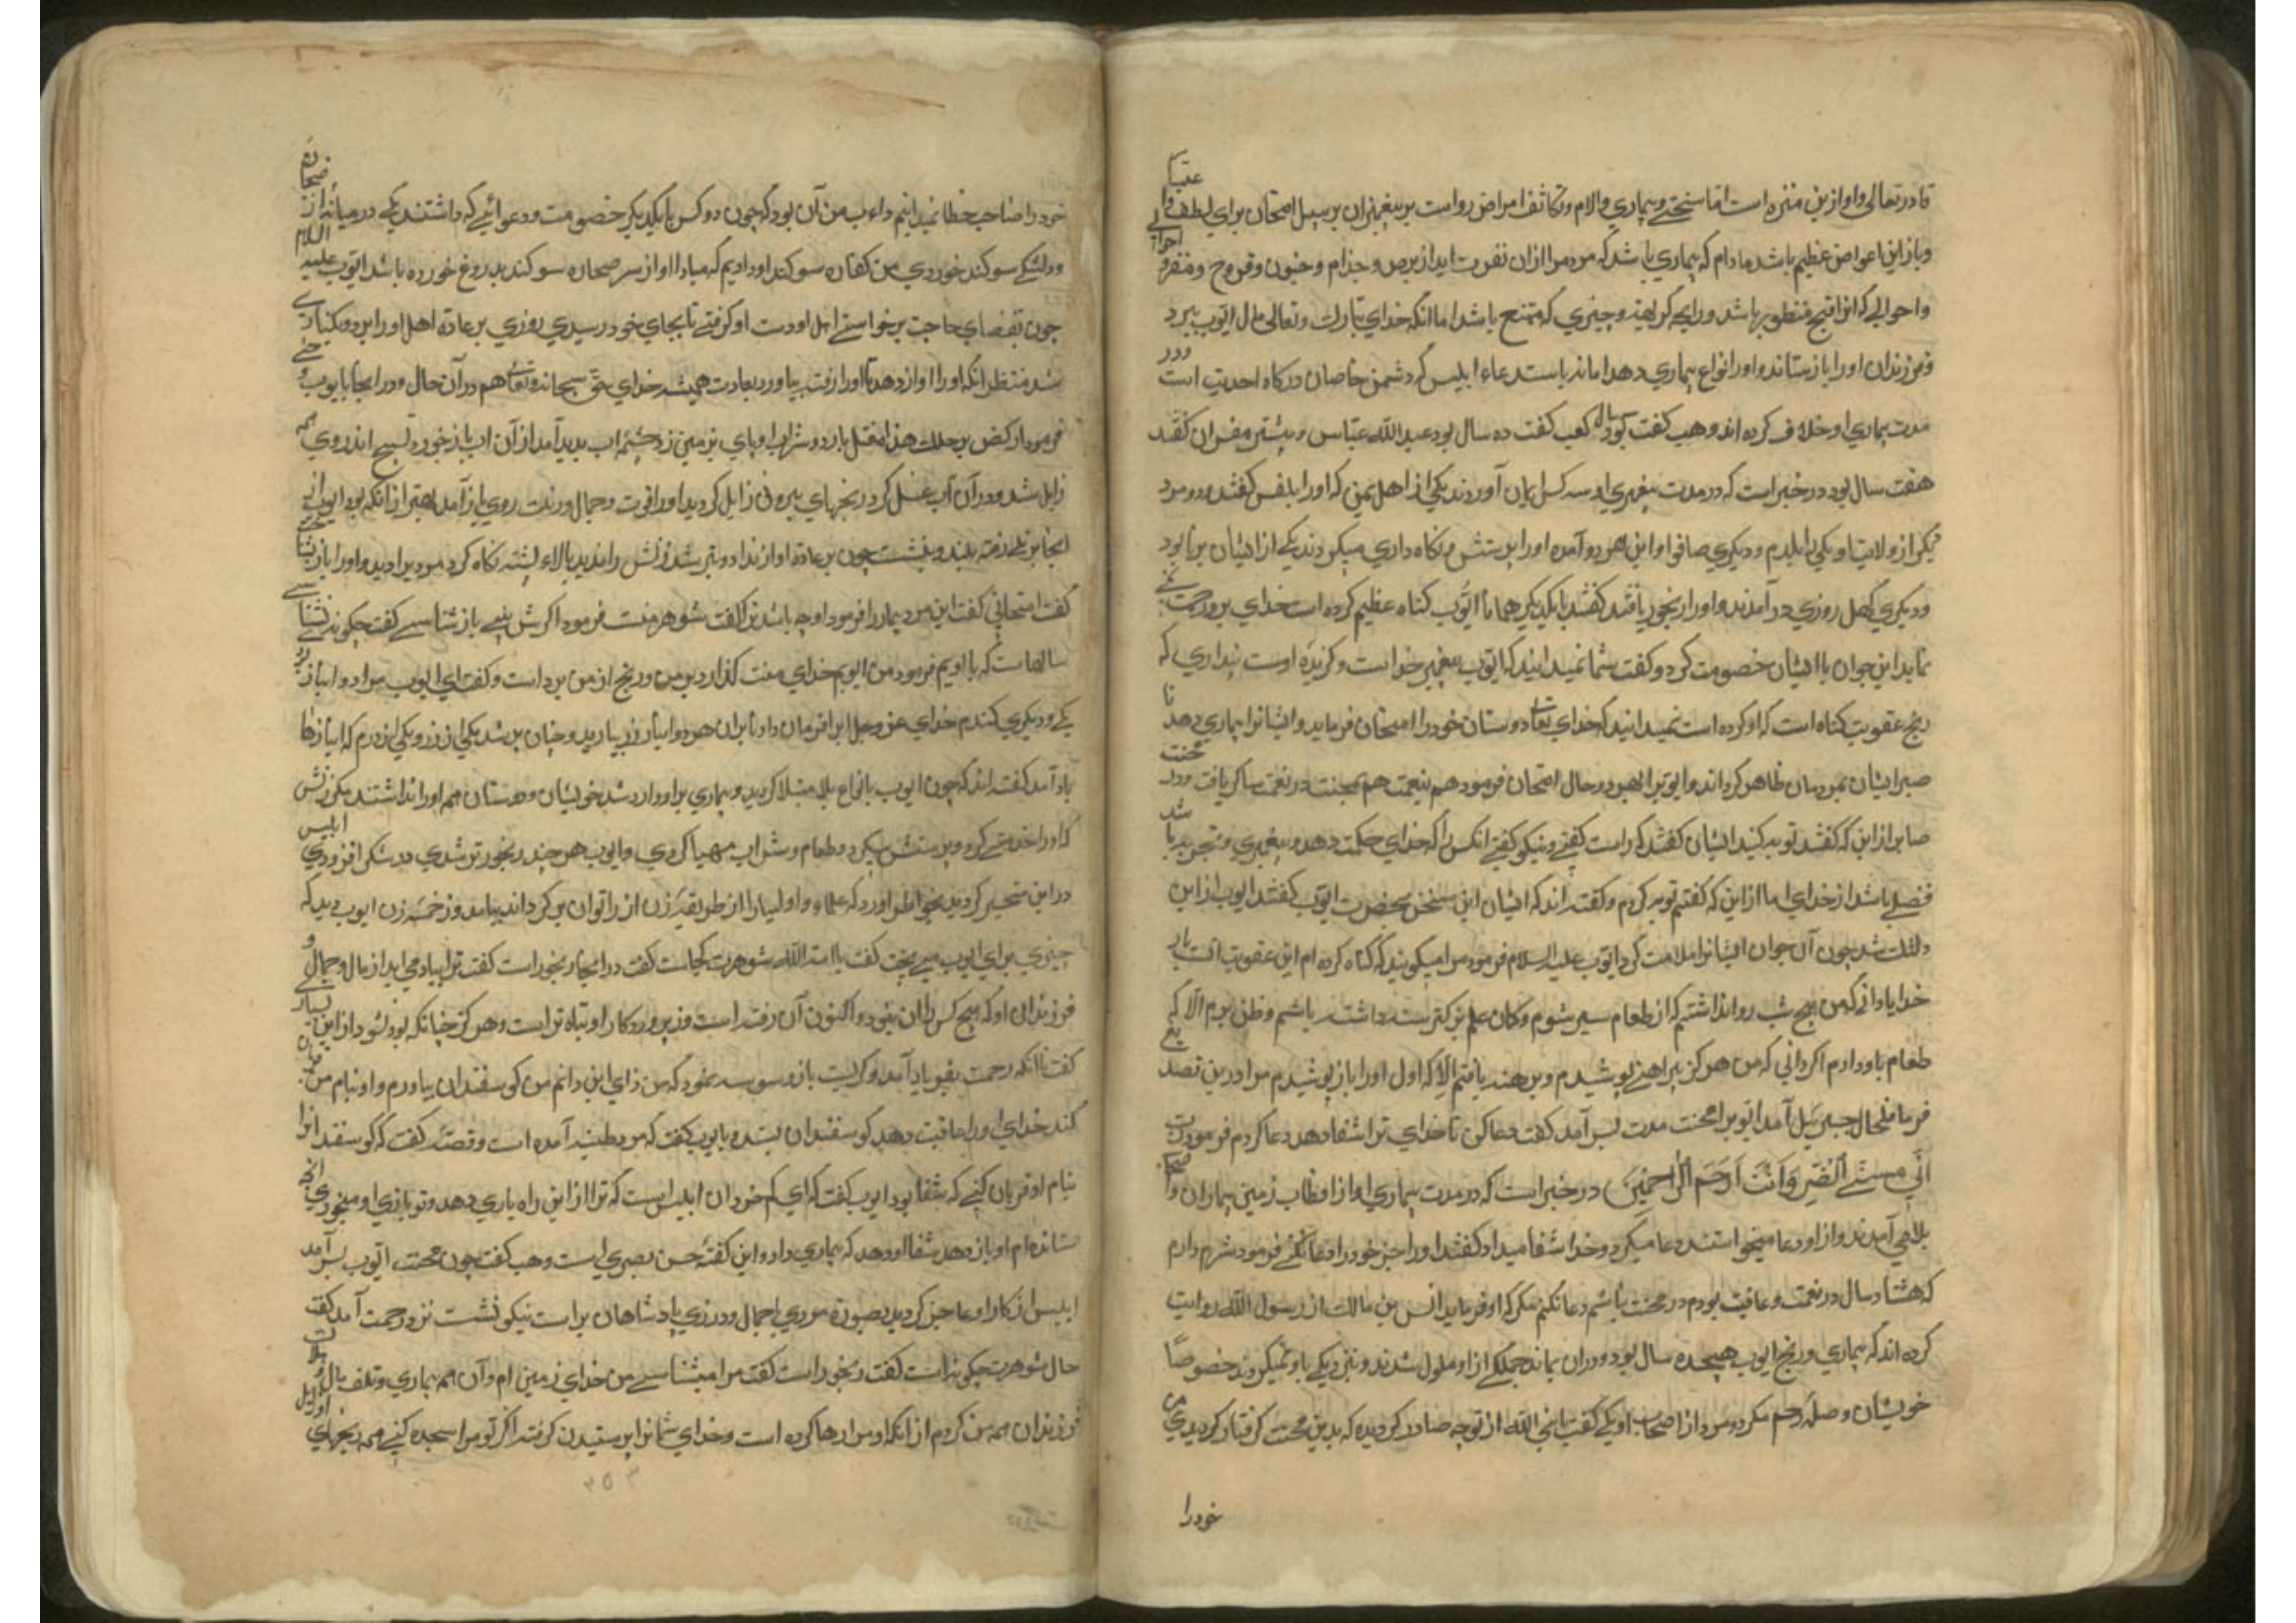 قادر تعالی و او ازین منزه است اما سختی و بیماری و الام و تکاثف امراض رواست بر پیغمبران بر سبیل امتحان برای لطف و اعتبار
و باز این اعواض عظیم باشد مادام که بیماری باشد که مردم را ازان نفرت اید از برص و جذام و جنون و قروح و منفره
و احوالی که انرا قبح منظر باشد و رایحه کریهه و چیزی که ممتنع باشد اما انکه خدای تبارک و تعالی مال ایوب ببرد
و فرزندان او را باز ستاند و او را انواع بیماری دهد اما نه باستدعاء ابلیس که دشمن خاصان درکاه احدیت است و در
مدت بیماری او خلاف کرده اند وهب کفت کعب کفت ده سال بود عبد الله عباس و بیشتر مفسران کفتند
هفت سال بود در خبر است که در مدت پیغمبری او سه کس ایمان آوردند یکی از اهل یمن که او را کفتند و دو مرد
دیکر از ولایت او یکی را یلدم و دیکری صافی و این هر دو آمده او را پرستش و نکاه داری میکردند یکی از ایشان برنا بود
و دیکری کهل روزی در آمدند و او را رنجور یافتند کفتند با یکدیکر همانا ایوب کناه عظیم کرده است خدای برو رحمت نمی
نماید این جوان با ایشان خصومت کرد و کفت شما نمیدانید که ایوب پیغمبر خدا است و کزیده اوست پنداری که
رنج عقوبت کناه است که او کرده است نمیدانید که خدای تعالی دوستان خود را امتحان فرماید و ایشانرا بیماری دهد تا
صبر ایشان بمردمان ظاهر کرداند و ایوب را بهر دو حال امتحان فرمود هم بنعمت هم بمحنت در نعمت شاکر یافت و در محنت
صابر از این که کفتند توبه کنید ایشان کفتند که راست کفتی و نیکو کفتی انکس را که خدای حکمت دهد و پیغمبری و تجربه باشد
فضلی باشد از خدای اما از این که کفتیم توبه کردیم و کفته اند که ایشان این سخن بحضرت ایوب کفتند ایوب از این
دلتنک شد چون آن جوان ایشانرا ملامت کرد ایوب علیه السلام فرمود مرا میکویند که کناه کرده ام این عقوبت انست بار
خدایا دانی که من هیچ شب روا نداشتم که از طعام سیر شوم و کمان علم بر کرسنه داشته باشم و ظن بردم الا که
طعام باو دادم اکر دانی که من هرکز پیراهنی پوشیدم و برهنه یافتم الا که اول او را باز پوشیدم مرا درین تصدیق
فرما فی الحال جبرئیل آمد ایوب را محنت مدت بسر آمد کفت دعا کن تا خدای ترا شفا دهد دعا کردم فرمود رب
انی مسنی الضر وانت ارحم الراحمین در خبر است که در مدت بیماری او از اقطاب زمین بیماران و اصحاب
بلا می آمدند و از او دعا میخواستند دعا میکرد و خدا شفا میداد کفتند او را چرا خود را دعا نکنی فرمود شرم دارم
که هشتاد سال در نعمت و عافیت بودم در محنت باشم دعا نکنم مکر که او فرماید انس بن مالک از رسول الله روایت
کرده اند که بیماری و رنج ایوب هیجده سال بود و دران بماند جملکی از او ملول شدند و نزدیکی باو نمیکردند خصوصا
خویشان و صله رحم مکر دو مرد از اصحاب او یکی کفت یا نبی الله از تو چه صادر کردیده که بدین محنت کرفتار کردیدی من
خود را
خود را صاحب خطا نمیدانیم داءب من آن بود که چون دو کس با یکدیکر خصومت و دعوائی که داشتند یکی در میانه از ضجاره
و دلتنکی سوکند خوردی من کفاره سوکند او دادیم که مبادا او از سر ضجاره سوکند بدروغ خورده باشد ایوب علیه السلام
چون بقضای حاجت برخواستی اهل او دست او کرفتی تا بجای خود رسیدی روزی بر عادة اهل او را
شد منتظر انکه او را آواز دهد تا او را از رفت بیاورد بعادت همیشه خدای حق سبحانه و تعالی هم در آن حال و در انجا بایوب وحی
فرمود ارکض برجلک هذا مغتسل بارد و شراب او پای بر زمین زد چشمه اب پدید آمد از آن اب باز خورد
زایل شد و در آن آب غسل کرد رنجهای بیرونی زایل کردید او را قوت و جمال و رنک روی باز آمد بهتر از انکه بود ایوب از
انجا بر تلی رفته بلند و بنشست چون بر عادة آواز نداد و دیر شد زنش را ندید بالاء پشته نکاه کرد مردی را دید و او را باز نشناخت
کفت این مرد بیمار را فرمود او چه باشد ترا کفت شوهر منست فرمود اکرش بینی باز شناسی کفت چکونه نشناسم
سالهاست که با اویم فرمود من ایوبم خدای منت کذارد بر من و رنج از من برداشت و کفت ای ایوب
یکی و دیکری کندم خدای عز و جل ابر فرمان داد تا بران هر دو انبار زر بارید و چنان پر شد یکی از زر و یکی از درم که انبارها
باد آمد کفته اند که چون ایوب بانواع بلا مبتلا کردید و بیماری بر او وارد شد خویشان و دوستان همه او را نداشتند مکر زنش
که او را خدمتی کرد و پرستش میکرد و طعام و شراب مهیا کردی و ایوب هر چند رنجورتر شدی در شکر افزودی ابلیس
در این متحیر کردید بخواطر آورد که علماء و اولیا را از طریقه زن از راه توان برکرداند بیامد و رحمه زن ایوب دید که
چیزی برای ایوب می پخت کفت یا امة الله شوهرت کجاست کفت در اینجا رنجور است کفت ترا بیاد می اید از مال و جمال و
فرزندان او که هیچ کس را ان نبود و اکنون آن رفته است و زیر روزکار او تباه تر است و هرکز چنانکه بود نشود از این بسیار
کفت تا انکه رحمت بفریاد آمد و کریست باز وسوسه نمود که من دای این دانم من کوسفندان بیاورم و او بنام من قربان
کند خدای او را عافیت دهد کوسفندان بستده و بایوب کفت که مرد طبیب آمده است و قصه کفت که کوسفند انرا
بنام او قربان کنی که شفا بود ایوب کفت که ای کم خرد ان ابلیس است که ترا از این راه بازی دهد و تو بازی او میخوری انکه
ستاند هم او باز دهد شفا او دهد که بیماری داد و این کفته حسن بصری است وهب کفت چون محنت ایوب بسر آمد
ابلیس از کار او عاجز کردید بصورة مردی باجمال و در زی پادشاهان بر اسب نیکو نشست نزد رحمت آمد کفت
حال شوهرت چکونه است کفت رنجور است کفت مرا میشناسی من خدای زمین ام و آن همه بیماری و تلف مال و
فرزندان همه من کردم از انکه او مرا رها کرده است و خدای شما را پرستیدن کرفته اکر تو مرا سجده کنی همه رنجهای او زایل
۳۵۳